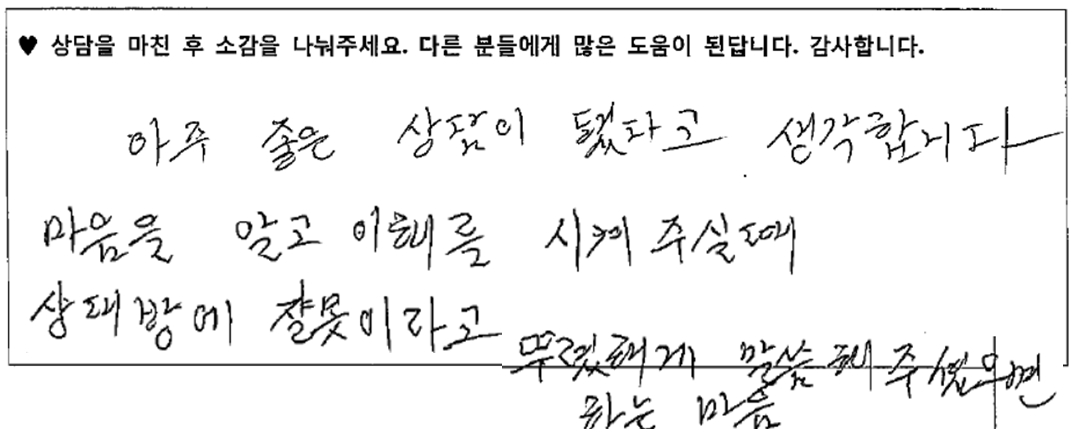 ♥ 상담을 마친 후 소감을 나눠주세요. 다른 분들에게 많은 도움이 된답니다. 감사합니다.
아주 좋은 상담이 됬다고 생각합니다
마음을 알고 이해를 시켜 주실때
상대방에 잘못이라고
뚜렷하게 말씀해 주셨으면
하는 마음